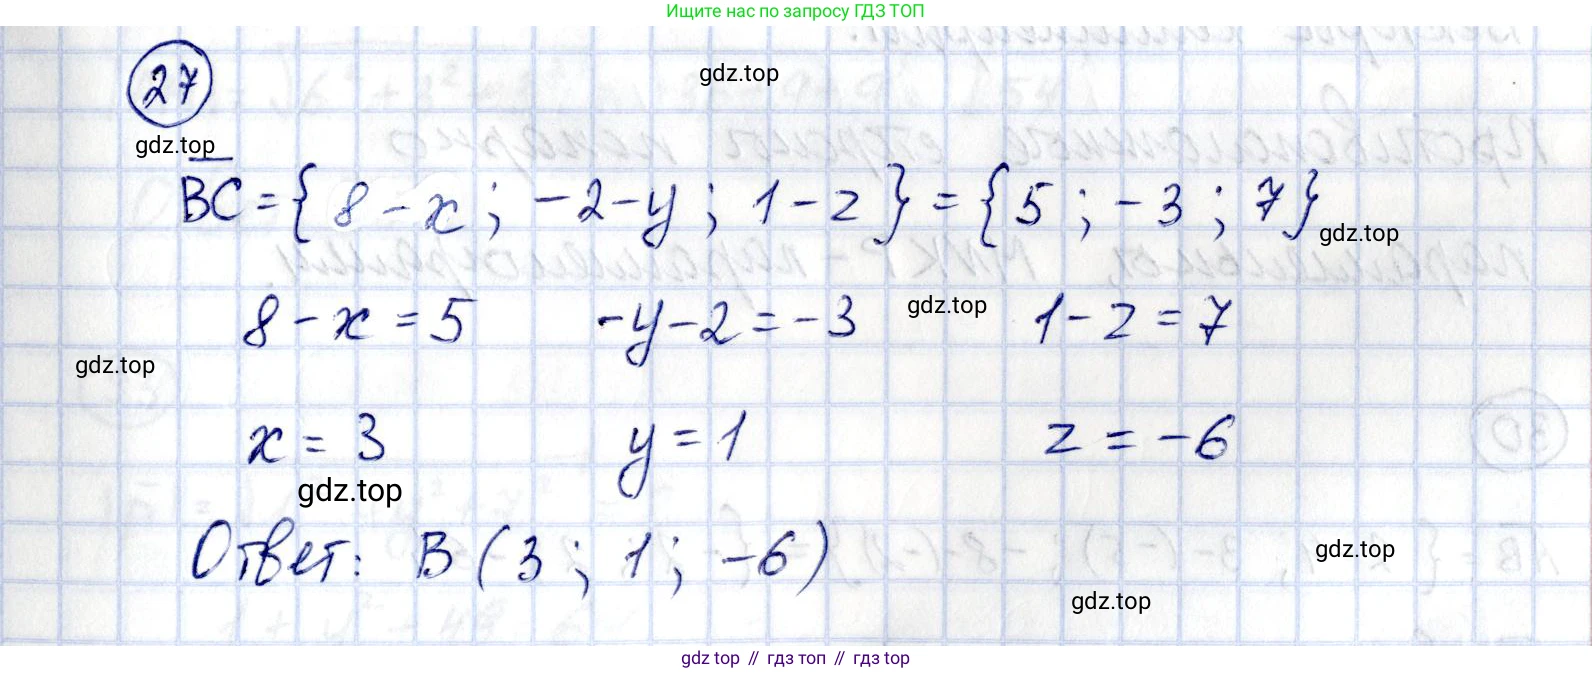 Ищите нас по запросу ГДЗ ТОП
27
gdz.top
gdz.top
BC = { 8 - x ; -2-y ; 1-z } = { 5 ; -3 ; 7 }
gdz.top
8 - x = 5 -y-2 = -3 1-z = 7
gdz.top
gdz.top
x = 3 y = 1 z = -6
gdz.top
Ответ: B (3 ; 1 ; -6)
gdz.top
gdz.top
gdz top // гдз топ // gdz top